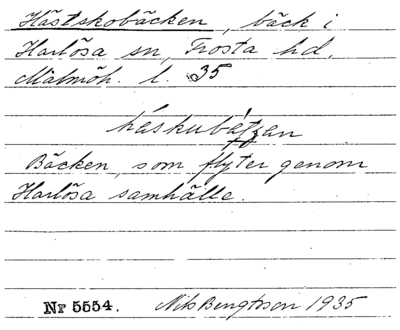 Hästskobäcken, bäck i
Harlösa sn, Frosta hd,
Malmöh. l. 35
háskubátzan
Bäcken, som flyter genom
Harlösa samhälle.
Nr 5554. Nils Bengtsson 1935